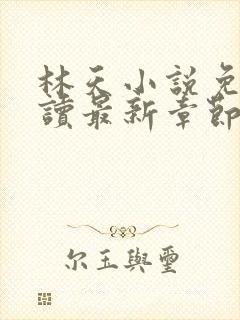 林天小説免
讀最新章節
尔玉與璽